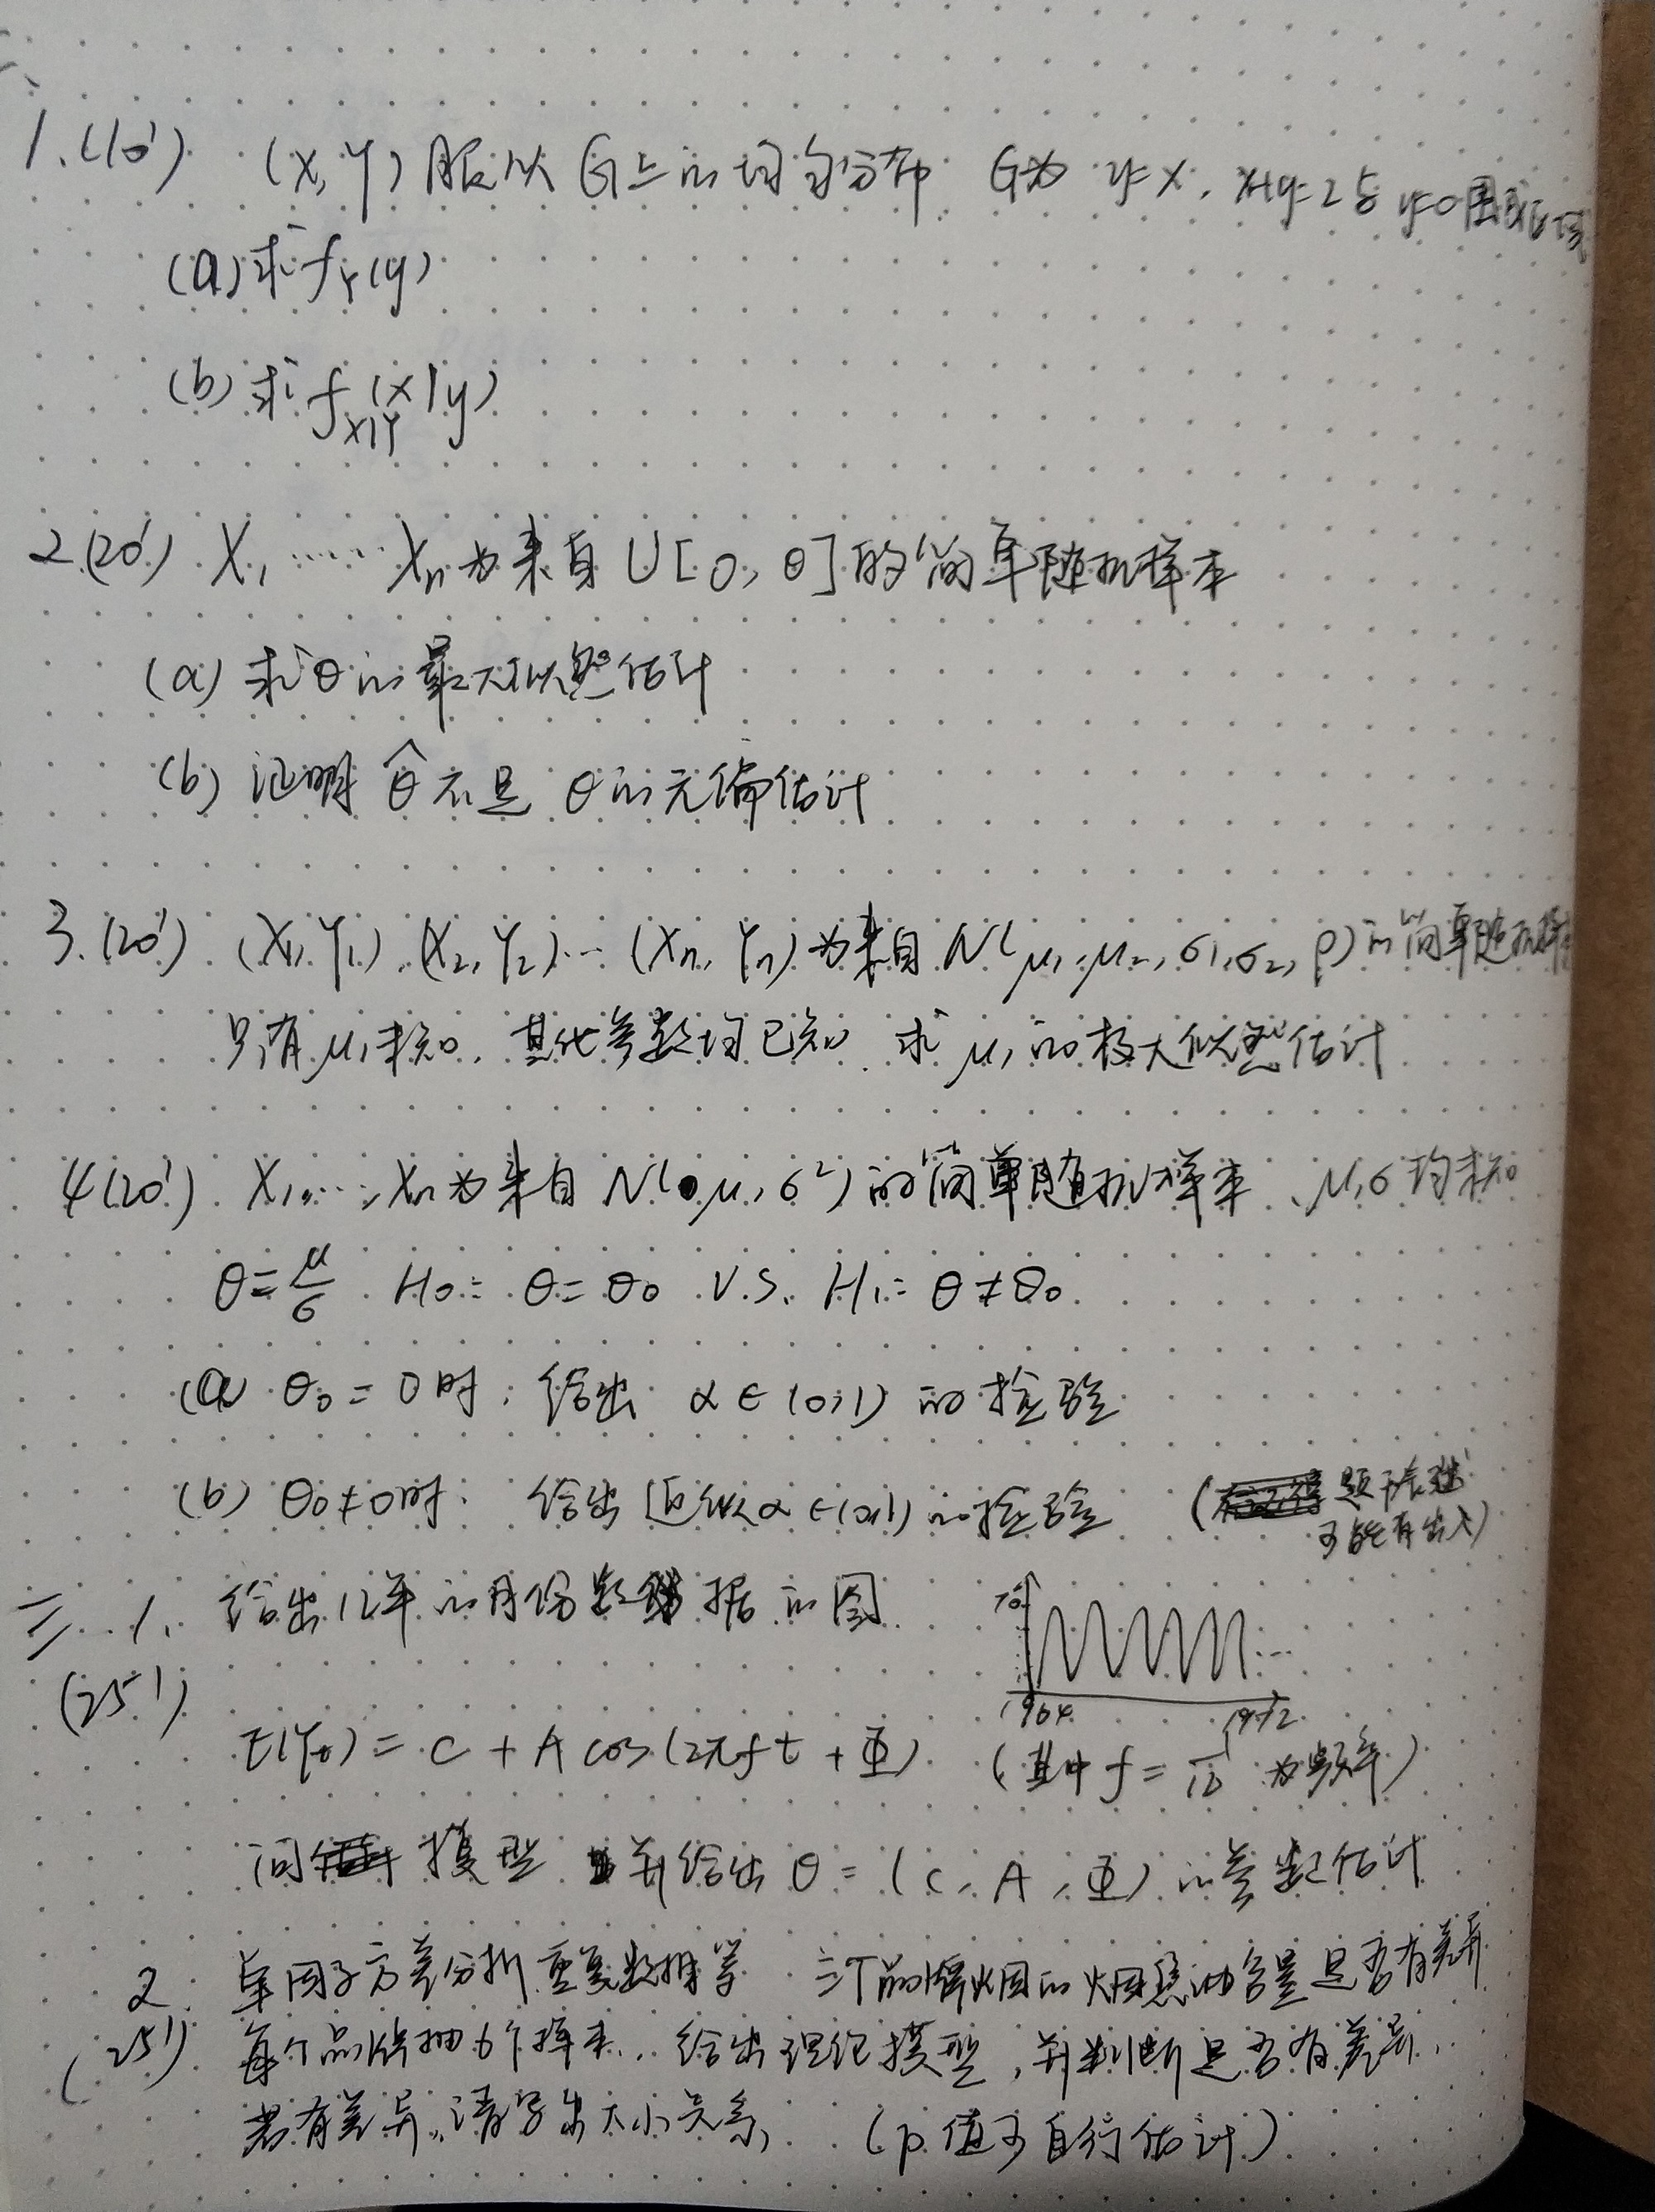 1.(10') (X,Y)服从G上的均匀分布 G为 y=x, x+y=2与y=0围成区域
(a)求fY(y)
(b)求fX|Y(x|y)
2.(20') X1……Xn为来自U[0,θ]的简单随机样本
(a)求θ的最大似然估计
(b)证明θ̂不是θ的无偏估计
3.(20') (X1,Y1),(X2,Y2)…(Xn,Yn)为来自N(μ1,μ2,σ1,σ2,ρ)的简单随机样本
只有μ1未知,其他参数均已知,求μ1的极大似然估计
4(20') X1,…,Xn为来自N(μ,σ²)的简单随机样本、μ,σ均未知
θ=μ/σ H0: θ=θ0 V.S. H1: θ≠θ0
(a) θ0=0时:给出α∈(0,1)的检验
(b) θ0≠0时:给出近似α∈(0,1)的检验 (题干表述
可能有出入)
三.1. 给出12年的月份数据的图
70
(25')
1964 1972
E(Yt)=C+Acos(2πft+Φ) (其中f=1/12为频率)
问模型 并给出θ=(C,A,Φ)的参数估计
2. 单因子方差分析 重复数相等 三个品牌烟的烟焦油含量是否有差异
(25') 每个品牌抽6个样本,给出理论模型,并判断是否有差异,
若有差异,请写出大小关系 (p值可自行估计)